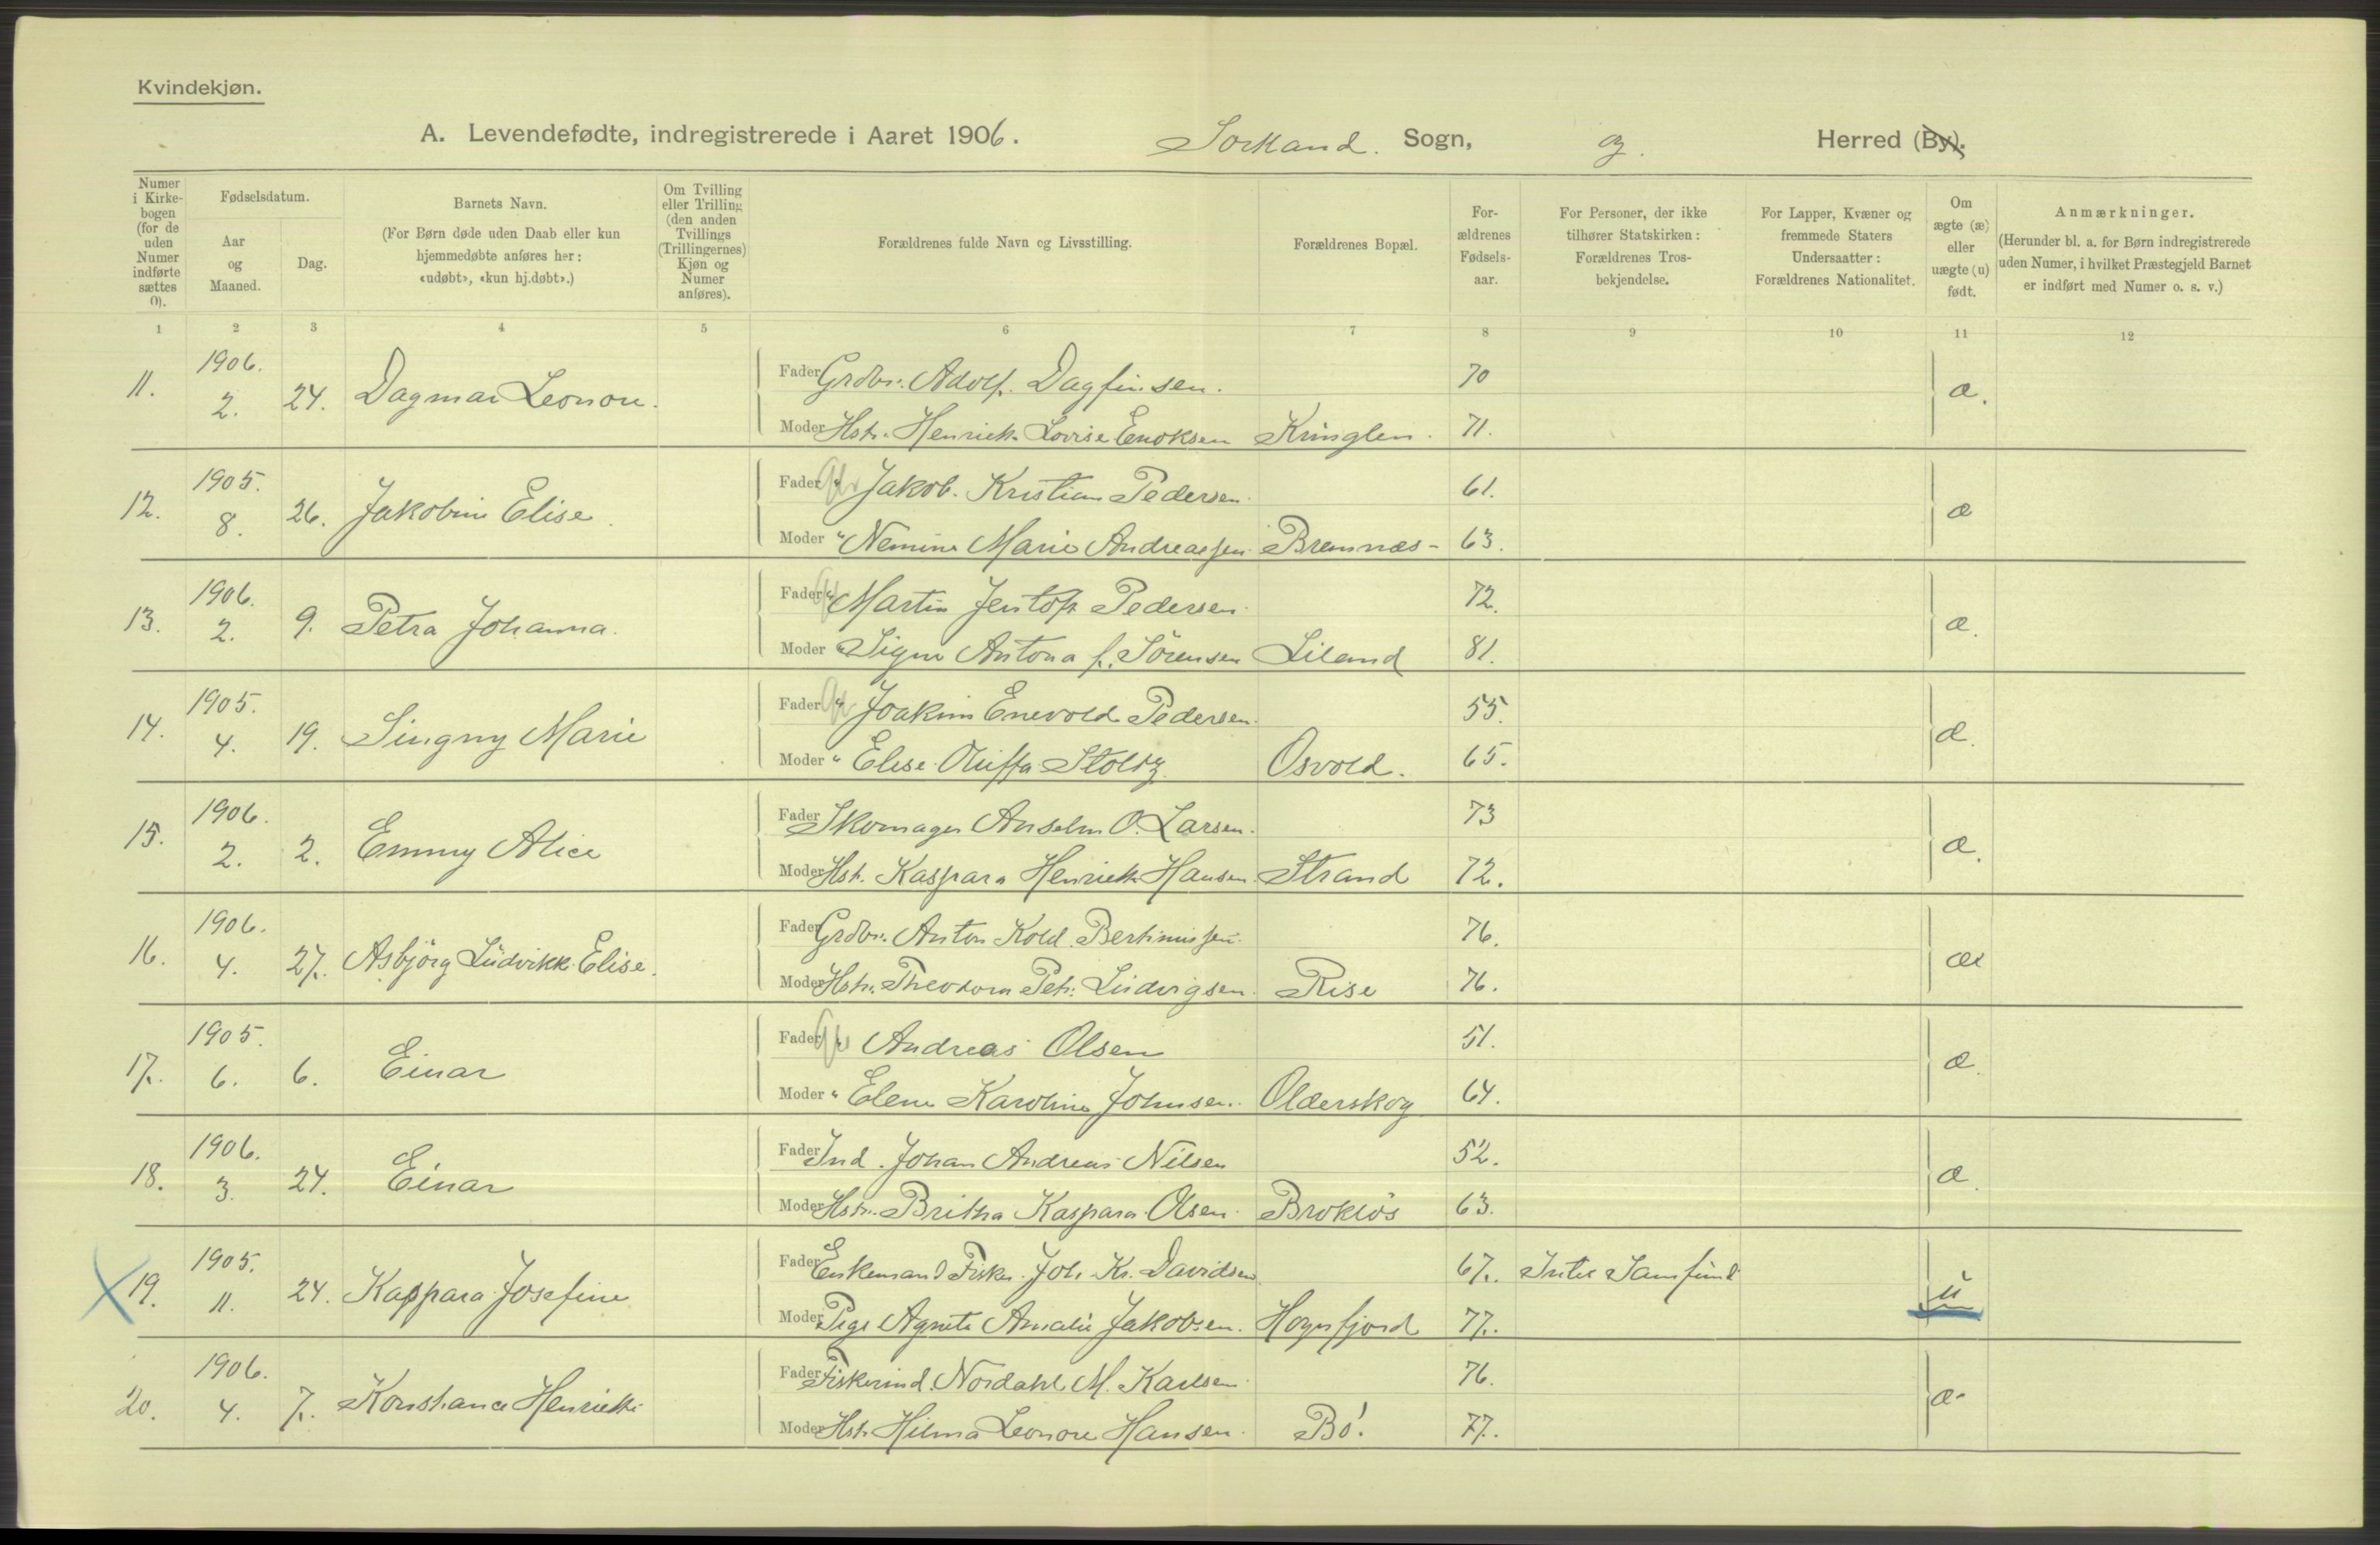 Kvindekjøn.
A. Levendefødte, indregistrerede i Aaret 1906. Sortland. Sogn, og. Herred (By).
Numer i Kirke-bogen (for de uden Numer indførte sættes 0).
Fødselsdatum.
Aar og Maaned.
Dag.
Barnets Navn.
(For Børn døde uden Daab eller kun hjemmedøbte anføres her: «udøbt», «kun hj.døbt».)
Om Tvilling eller Trilling (den anden Tvillings (Trillingernes) Kjøn og Numer anføres).
Forældrenes fulde Navn og Livsstilling.
Forældrenes Bopæl.
For-ældrenes Fødsels-aar.
For Personer, der ikke tilhører Statskirken: Forældrenes Tros-bekjendelse.
For Lapper, Kvæner og fremmede Staters Undersaatter: Forældrenes Nationalitet.
Om ægte (æ) eller uægte (u) født.
Anmærkninger.
(Herunder bl. a. for Børn indregistrerede uden Numer, i hvilket Præstegjeld Barnet er indført med Numer o. s. v.)
1 2 3 4 5 6 7 8 9 10 11 12
11. 1906. 2. 24. Dagmar Leonore. Fader Grdbr. Adolf Dagfinsen. 70 æ.
Moder Hstr. Henrich. Lovise Enoksen Kringlen. 71.
12. 1905. 8. 26. Jakobine Elise. Fader " Jakob. Kristian Pedersen. 61. æ
Moder " Nemine Marie Andreassen Bremnæs - 63.
13. 1906. 2. 9. Petra Johanna. Fader " Martin Jentoft Pedersen. 72. æ.
Moder " Signe Antona f. Sörensen Liland 81.
14. 1905. 4. 19. Singny Marie Fader " Joakim Enevold Pedersen. 55. æ.
Moder " Elise Oluffa Stoltz Osvold. 65.
15. 1906. 2. 2. Emmy Alice Fader Skomager Anselm O. Larsen. 73 æ.
Moder Hstr. Kaspara Henrikke Hansen. Strand 72.
16. 1906. 4. 27. Asbjörg Ludvikk. Elise. Fader Grdbr. Anton Kold. Bertinussen. 76. æ
Moder Hstr. Theodora Petr. Ludvigsen. Rise 76.
17. 1905. 6. 6. Einar Fader " Andreas Olsen 51. æ.
Moder " Elene Karoline Johnsen. Olderskog 64.
18. 1906. 3. 24. Einar Fader Ind. Johan Andreas Nilsen 52. æ.
Moder Hstr. Britha Kaspara Olsen. Brokløs 63.
19. 1905. 11. 24. Kaspara Josefine Fader Enkemand Fisker. Joh. Kr. Davidsen 67. Intet Samfund u
Moder Pige Agnete Amalie Jakobsen. Hognfjord 77.
20. 1906. 4. 7. Konstance Henrikke Fader Fiskerind. Nordahl M. Karlsen. 76. æ.
Moder Hstr. Hilma Leonore Hansen. Bö. 77.